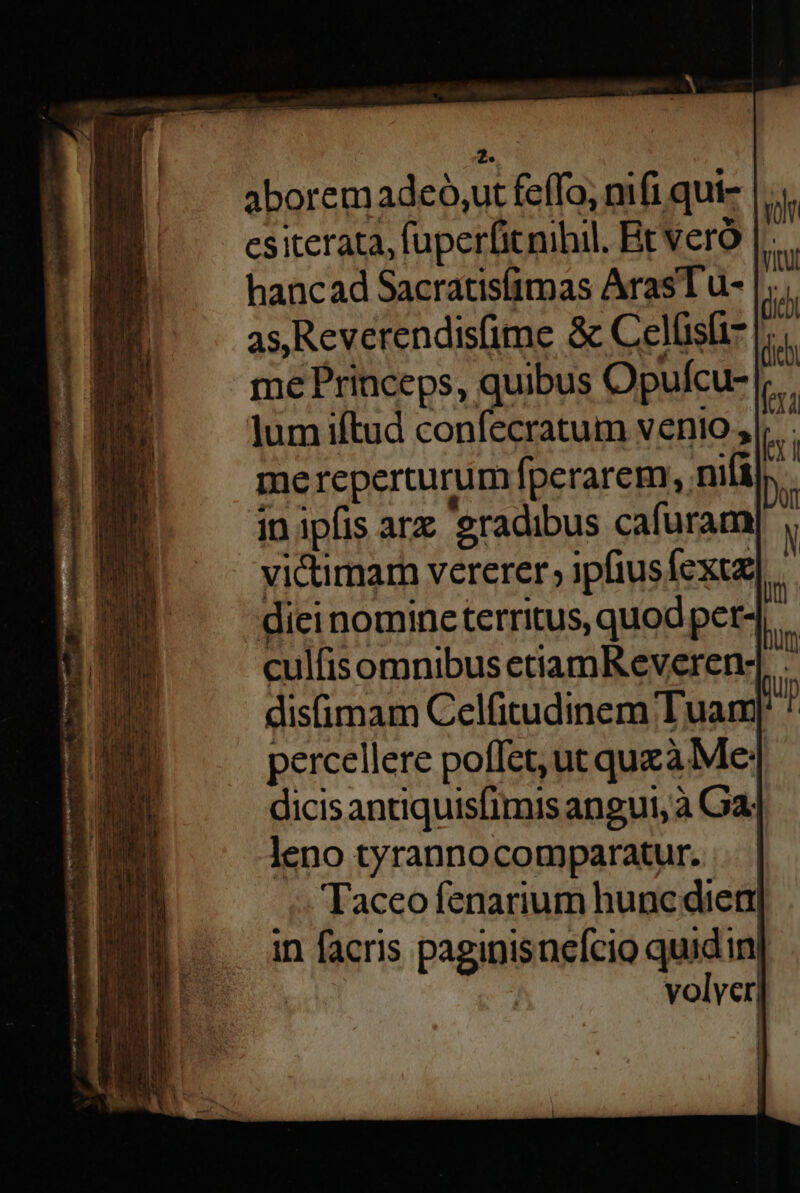 2.
aboremadeò,ut feſſo, niſi qui-
esiterata, ſuperſitnihil. Et verò
hancad Sacratisſimas ArasTu-
as,Reverendisſime & Celſisſi-
me Princeps, quibus Opuſcu-
lum iſtud conſecratum venio,
mereperturumſperarem, niſi
in ipſis aræ gradibus caſuram
victimam vererer, ipſiusſextæ
dieinomineterritus, quodper-
culſisomnibusetiamReveren-
disſimam Celſitudinem Tuam
percellere poſſet, ut quæà Me-
dicisantiquisſimisangui, à Ga-
leno tyrannocomparatur.
Taceo ſenarium huncdiem
in ſacris paginisneſcio quidin
volver